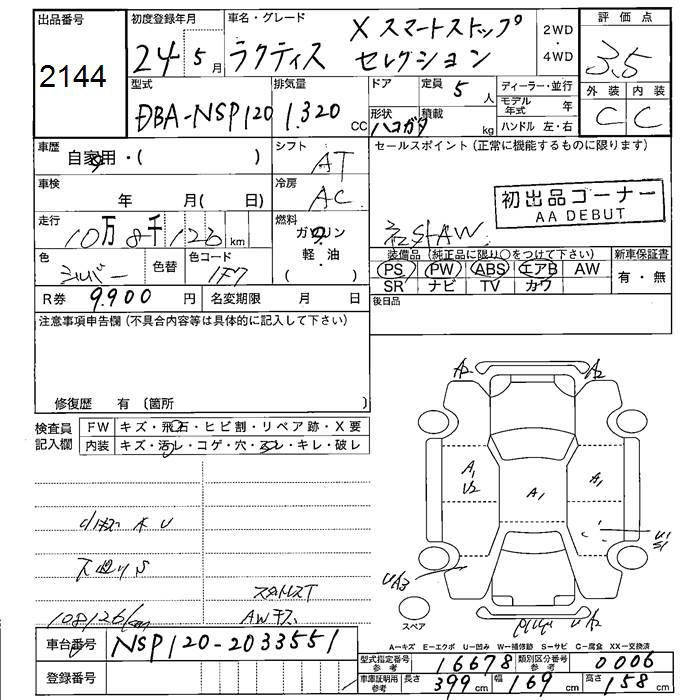 出品番号
2144
初度登録年月
24 5 月
車名・グレード
ラクティス X スマートストップ
セレクション
2WD
・
4WD
評価点
3.5
外装 内装
C C
型式
DBA-NSP120
排気量
1.320 CC
ドア
定員 5 人
形状 ハコガタ
積載 kg
ディーラー・並行
モデル年式 年
ハンドル 左・右
車歴
自家用・( )
シフト
AT
車検
年 月( 日)
冷房
AC
走行
10万8千126 km
燃料
ガソリン
軽・油
( )
色
シルバー
色替
色コード
1F7
R券 9,900 円
名変期限 月 日
セールスポイント(正常に機能するものに限ります)
初出品コーナー
AA DEBUT
社外AW
装備品(純正品に限り○をつけて下さい)
PS PW ABS エアB AW
SR ナビ TV カワ
新車保証書
有・無
後日品
注意事項申告欄(不具合内容等は具体的に記入して下さい)
修復歴 有 〔箇所
検査員
記入欄
FW キズ・飛石・ヒビ割・リペア跡・X要
内装 キズ・汚レ・コゲ・穴・スレ・キレ・破レ
小キズ A U
下廻り S
108126km
スタッドレスT
AWキズ
A2 A2
A1
U2
A1
A1
U1
S1
UA3
U A2
スペア
A-キズ E-エクボ U-凹み W-補修跡 S-サビ C-腐食 XX-交換済
車台番号 NSP120-2033551
登録番号
型式指定番号
参考
16678
類別区分番号
参考
0006
車庫証明用
参考
長さ 399 cm 幅 169 cm 高さ 158 cm